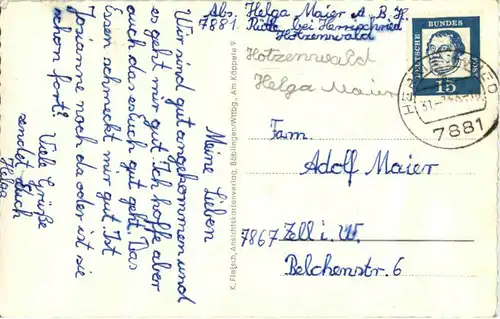 Abs. Helga Maier A. B. H.
7881 Rütte bei Herrischried
Hotzenwald
Hotzenwald
Helga Maier
DEUTSCHE BUNDES
15
7881
Meine Lieben
Wir sind gut angekommen und
es geht mir gut. Ich hoffe aber
auch das es euch gut geht. Das
Essen schmeckt mir gut. Ist
Josianne noch da oder ist sie
schon fort?
Viele Grüße
sendet Euch
Helga
K. Fletsch, Ansichtskartenverlag, Böblingen/Wttbg., Am Käppele 9
Fam.
Adolf Maier
7867 Zell i. W.
Belchenstr. 6